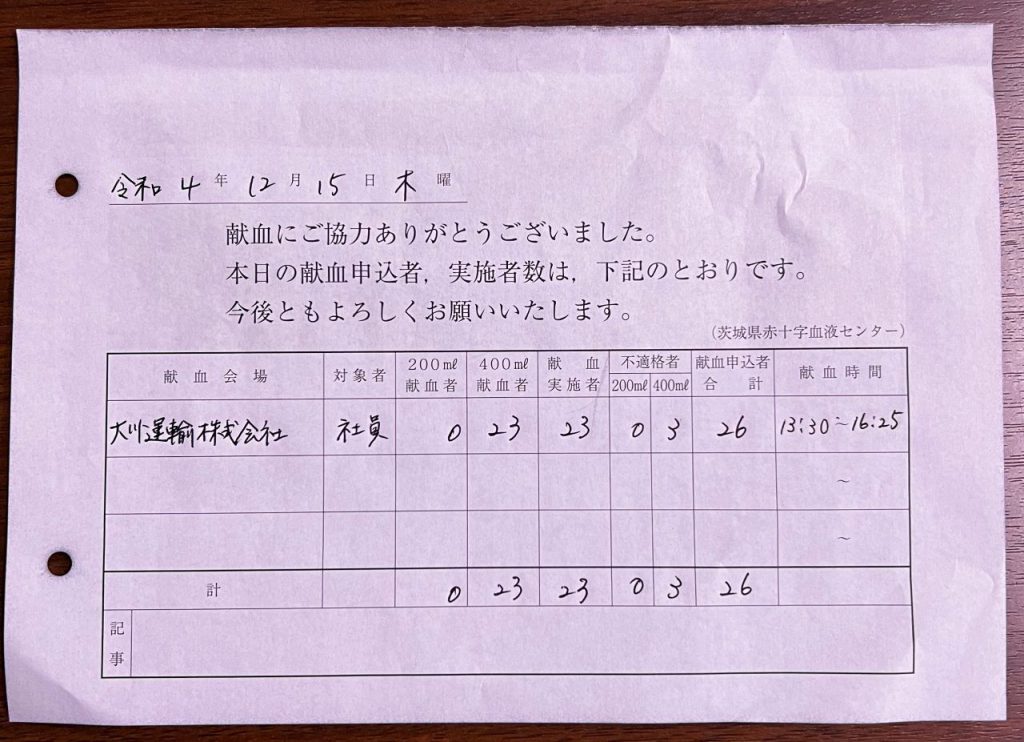 令和 4 年 12 月 15 日 木 曜
献血にご協力ありがとうございました。
本日の献血申込者,実施者数は,下記のとおりです。
今後ともよろしくお願いいたします。
（茨城県赤十字血液センター）
献血会場 対象者 200㎖献血者 400㎖献血者 献血実施者 不適格者 200㎖ 400㎖ 献血申込者合計 献血時間
大川運輸株式会社 社員 0 23 23 0 3 26 13:30～16:25
～
～
計 0 23 23 0 3 26
記事